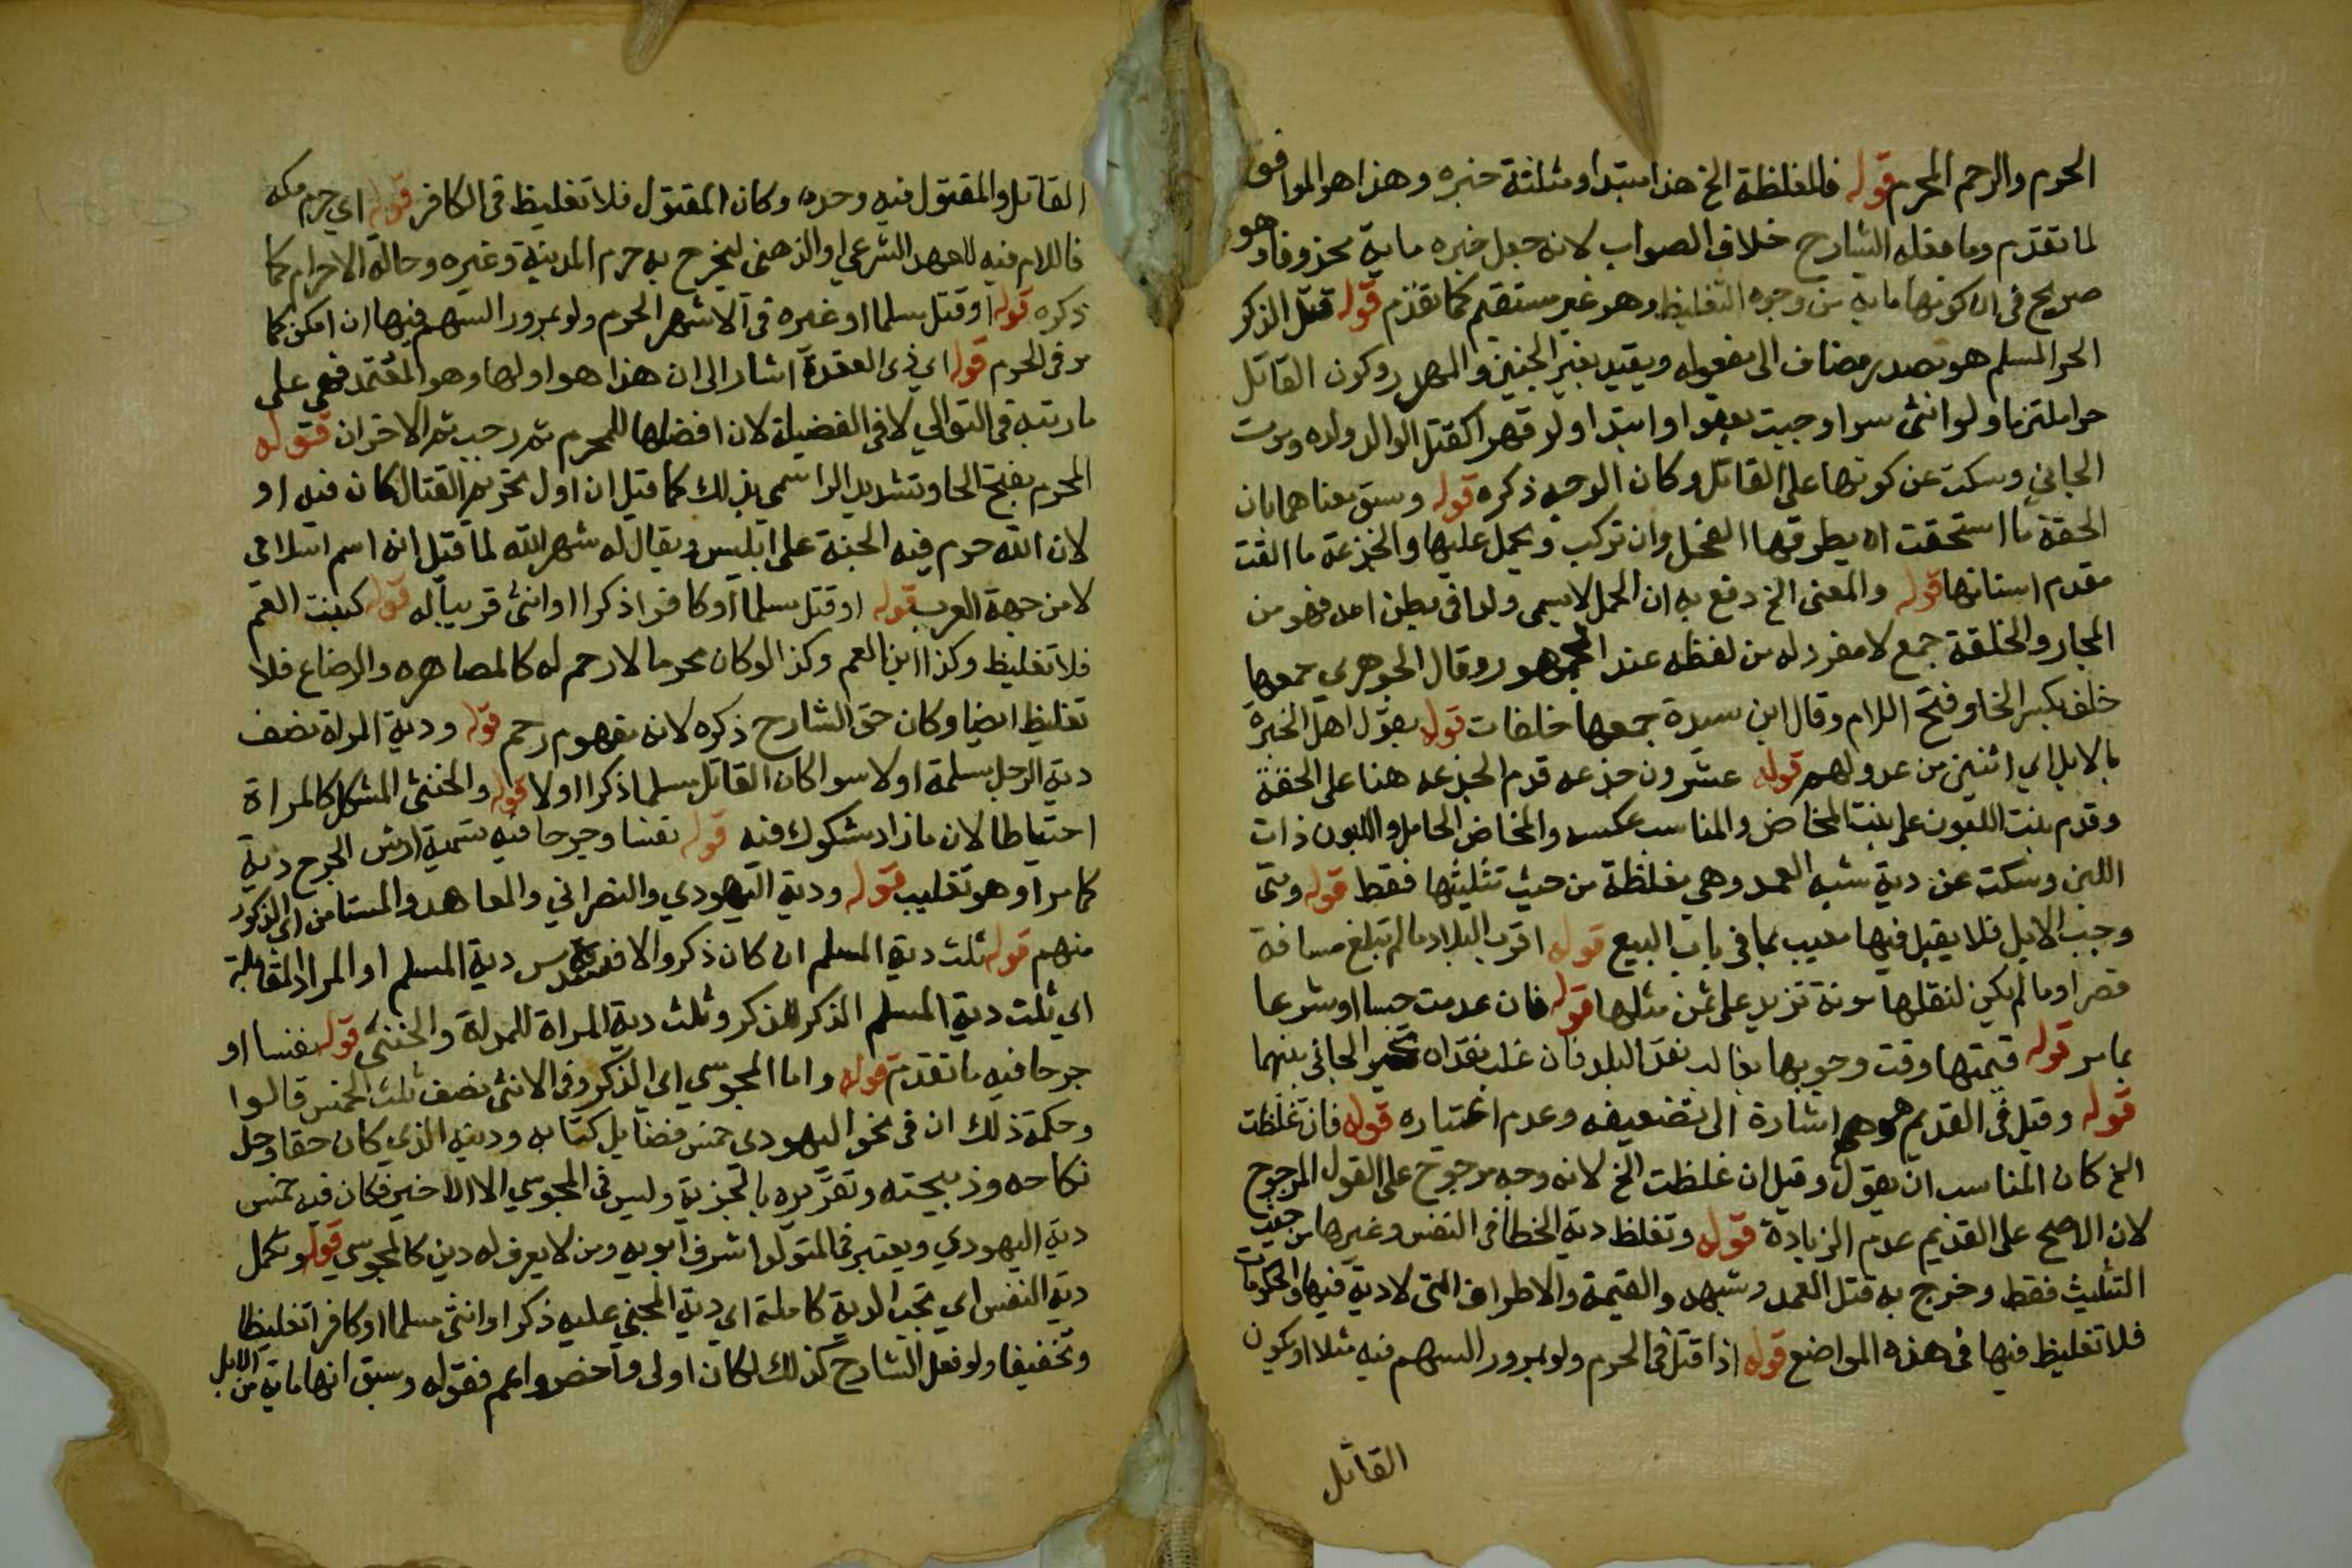 الحرم والرحم المحرم قوله فالمغلظة الخ هذا مبتدا ومثلثة خبره وهذا هو الموافق
لما تقدم وما فعله الشارح خلاف الصواب لانه جعل خبره ماية محذوفا وهو
صريح في ان كونها ماية من وجوه التغليظ وهو غير مستقيم كما تقدم قوله قتل الذكر
الحر المسلم هو مصدر مضاف الى مفعوله ويقيد بغير الجنين والمهدر وكون القاتل
حرا ملتزما ولو انثى سوا وجبت بعفو او ابتدا ولو قهرا كقتل الوالد ولده وموت
الجاني وسكت عن كونها على القاتل وكان الوجه ذكره قوله وسبق معناهما بان
الحقة ما استحقت ان يطرقها الفحل وان تركب ويحمل عليها والجذعة ما القت
مقدم اسنانها قوله والمعنى الخ دفع به ان الحمل لا يسمى ولدا في بطن امه فهو من
المجاز والخلفة جمع لا مفرد له من لفظه عند الجمهور وقال الجوهري جمعها
خلف بكسر الخا وفتح اللام وقال ابن سيدة جمعها خلفات قوله بقول اهل الخبرة
بالابل اي اثنين من عدولهم قوله عشرون جذعه قدم الجذعه هنا على الحقة
وقدم بنت اللبون على بنت المخاض والمناسب عكسه والمخاض الحامل واللبون ذات
اللبن وسكت عن دية شبه العمد وهي مغلظة من حيث تثليثها فقط قوله ومتى
وجبت الابل فلا يقبل فيها معيب بما في باب البيع قوله اقرب البلاد ما لم تبلغ مسافة
قصر او ما لم يكن لنقلها مونة تزيد على ثمن مثلها قوله فان عدمت حسا او شرعا
بما مر قوله قيمتها وقت وجوبها بغالب نقد البلد فان غلب نقدان تخير الجاني بينهما
قوله وقيل في القديم هو اشارة الى تضعيفه وعدم اختياره قوله فان غلظت
الخ كان المناسب ان يقول وقيل ان غلظت الخ لانه وجه مرجوح على القول المرجوح
لان الاصح على القديم عدم الزيادة قوله وتغلظ دية الخطا في النفس وغيرها من حيث
التثليث فقط وخرج به قتل العمد وشبهه والقيمة والاطراف التي لا دية فيها والحكومات
فلا تغليظ فيها في هذه المواضع قوله اذا قتل في الحرم ولو بمرور السهم فيه مثلا او يكون
القاتل
القاتل والمقتول فيه وحده وكان المقتول فلا تغليظ في الكافر قوله اي حرم مكه
فاللام فيه للعهد الشرعي او الذهني ليخرج به حرم المدينة وغيره وحالة الاحرام كما
ذكره قوله او قتل مسلما او غيره في الاشهر الحرم ولو بمرور السهم فيها ان امكن كما
مر في الحرم قوله اي ذي القعدة اشار الى ان هذا هو اولها وهو المعتمد فهي على
ما رتبه في التوالي لا في الفضيلة لان افضلها المحرم ثم رجب ثم الاخران قوله
المحرم بفتح الحا وتشديد الرا سمي بذلك كما قيل ان اول تحريم القتال كان فيه او
لان الله حرم فيه الجنة على ابليس ويقال له شهر الله لما قيل انه اسم اسلامي
لا من جهة العرب قوله او قتل مسلما او كافرا ذكرا او انثى قريبا له قوله كبنت العم
فلا تغليظ وكذا ابن العم وكذا لو كان محرما لا رحم له كالمصاهره والرضاع فلا
تغليظ ايضا وكان حق الشارح ذكره لانه مفهوم رحم قوله ودية المراة نصف
دية الرجل مسلمة او لا سوا كان القاتل مسلما ذكرا او لا قوله والخنثى المشكل كالمراة
احتياطا لان ما زاد مشكوك فيه قوله نفسا وجرحا فيه تسمية ارش الجرح دية
كما مر او هو تغليب قوله ودية اليهودي والنصراني والمعاهد والمستامن اي الذكور
منهم قوله ثلث دية المسلم ان كان ذكرا والا فسدس دية المسلم او المراد المقابلة
اي ثلث دية المسلم الذكر للذكر وثلث دية المراة للمراة والخنثى قوله نفسا او
جرحا فيه ما تقدم قوله واما المجوسي اي الذكر وفي الانثى نصف ثلث الخمس قالوا
وحكمة ذلك ان في نحو اليهودي خمس فضايل كتابه ودينه الذي كان حقا وحل
نكاحه وذبيحته وتقريره بالجزية وليس في المجوسي الا الاخير فكان فيه خمس
دية اليهودي ويعتبر في المتولد اشرف ابويه ومن لا يعرف له دين كالمجوسي قوله وتكمل
دية النفس اي تجب الدية كاملة اي دية المجني عليه ذكرا وانثى مسلما او كافرا تغليظا
وتخفيفا ولو فعل الشارح كذلك لكان اولى واخص واعم فقوله وسبق انها ماية من الابل